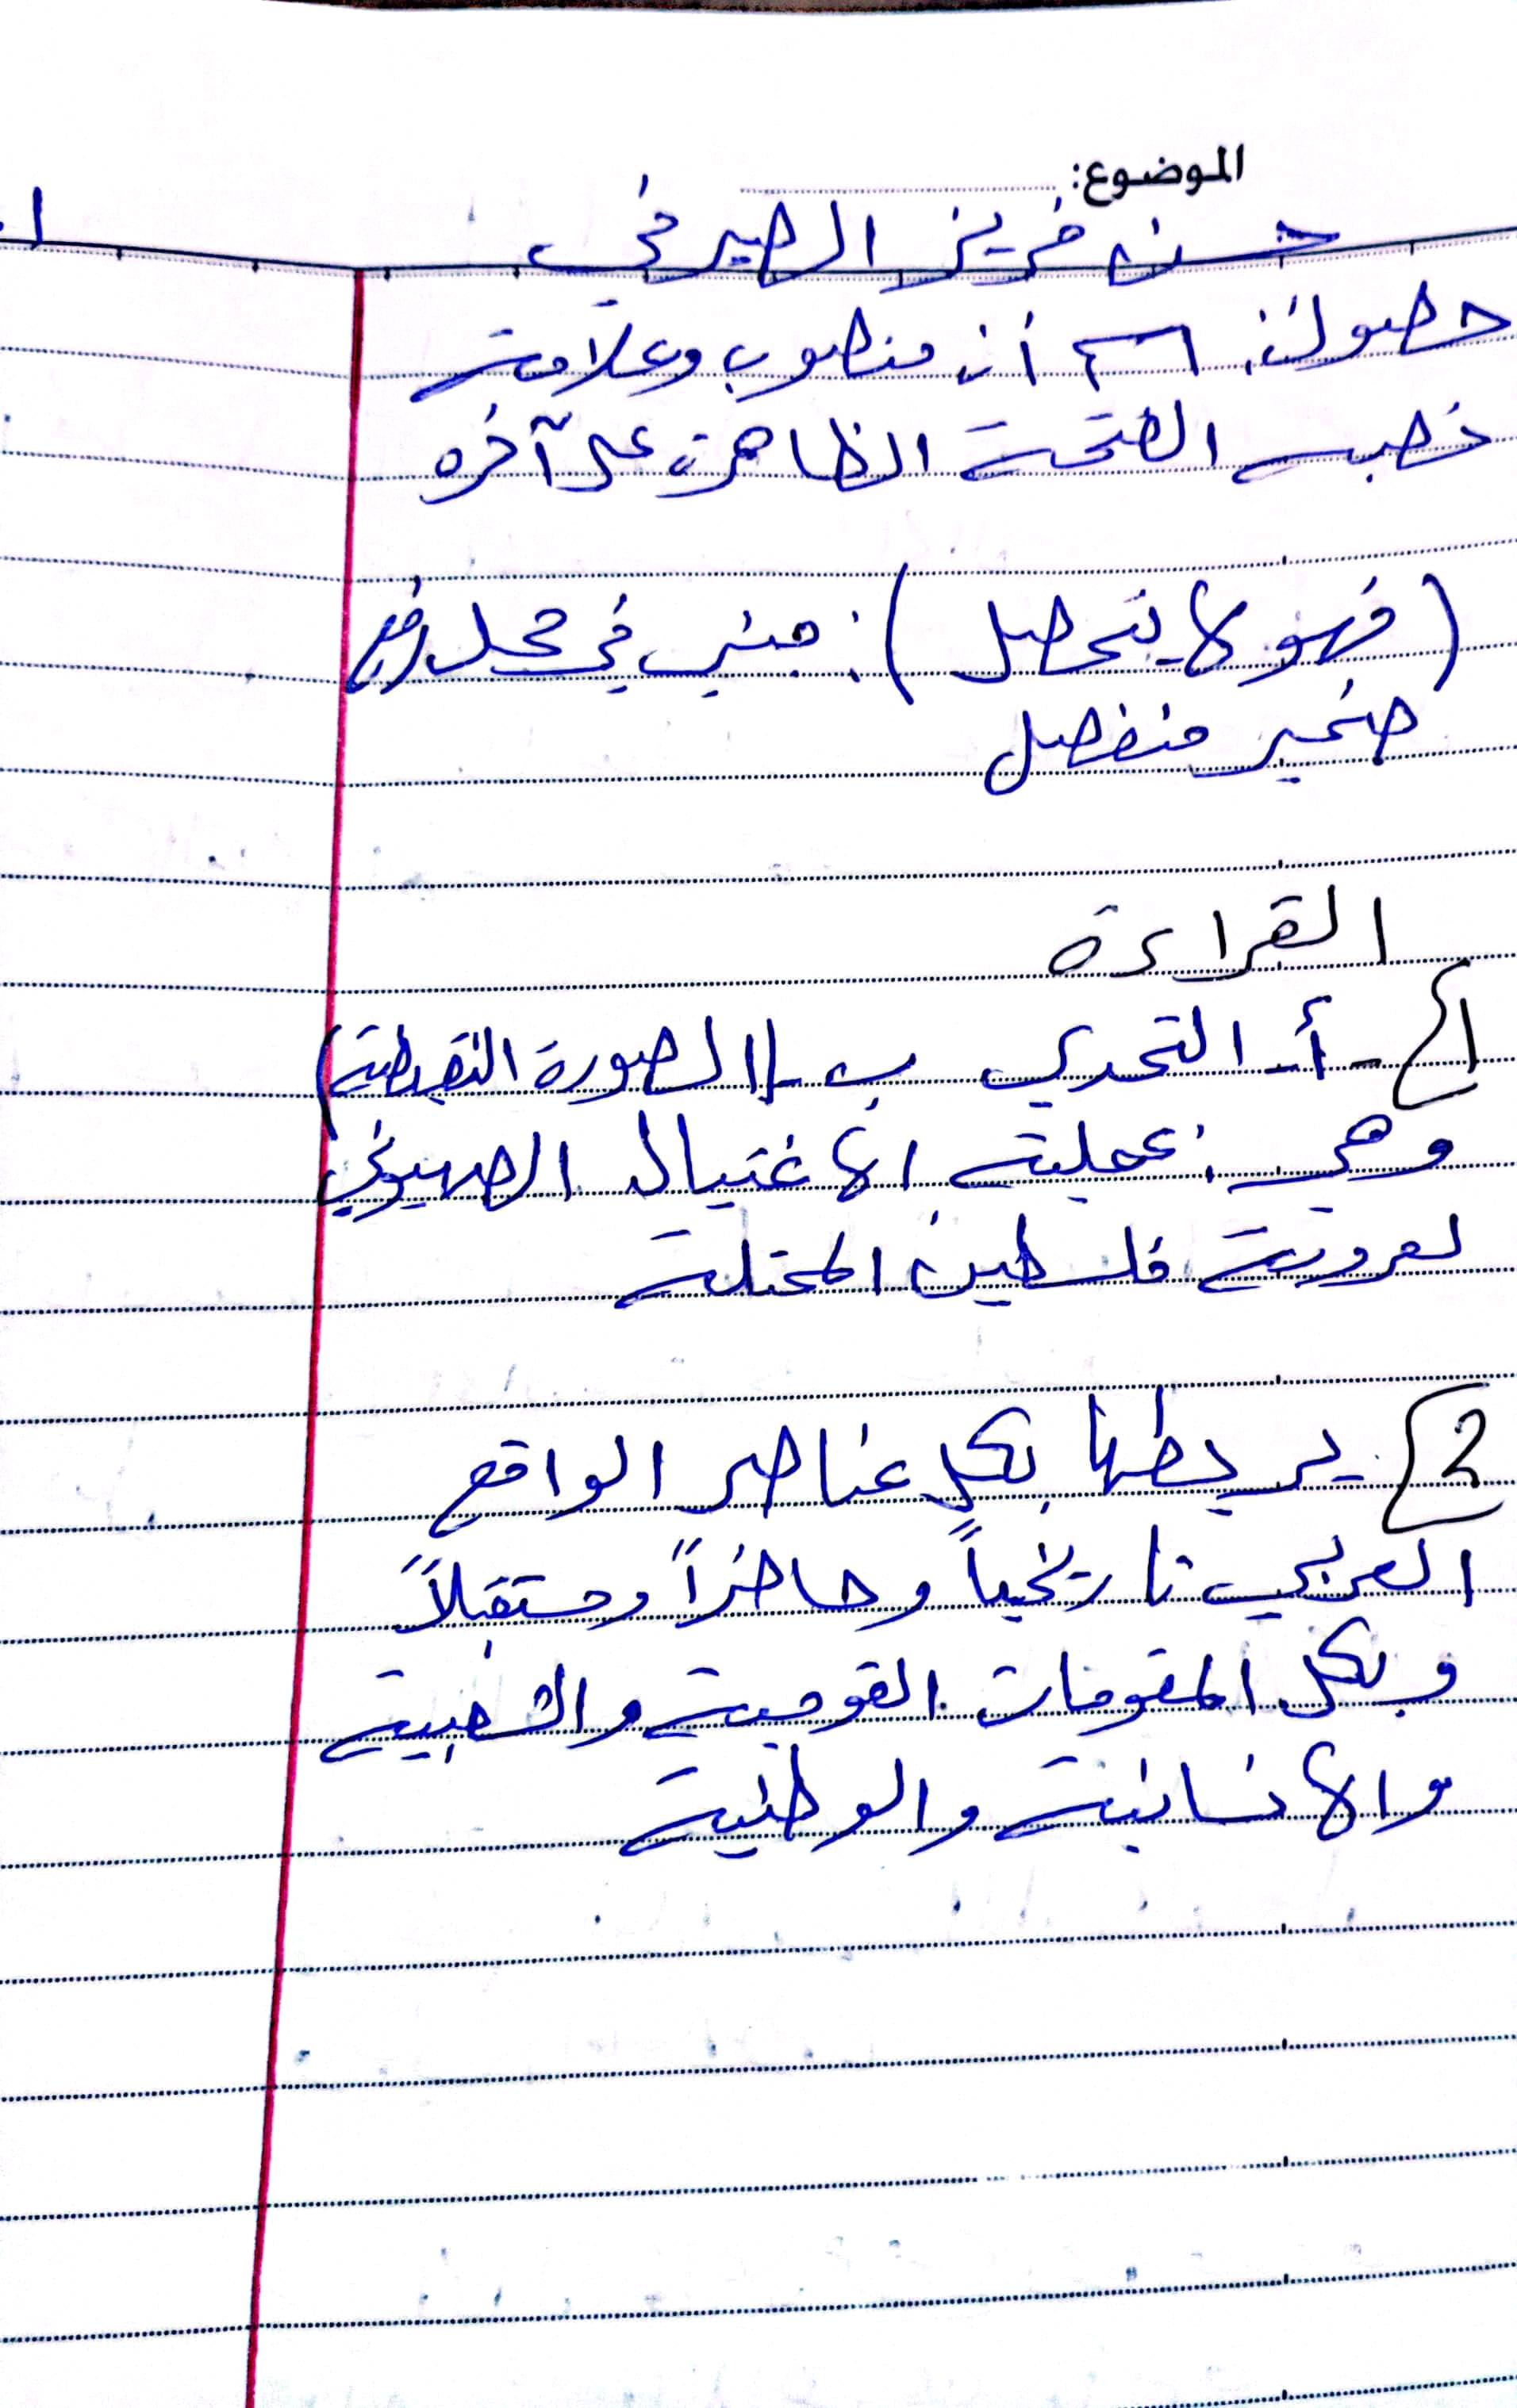 الموضوع:
حسن فريز الصيرفي
حصول: اسم أن منصوب وعلامة
نصبه الفتحة الظاهرة على آخره
(فهو لا يتحصل): مبني في محل رفع
ضمير منفصل
القراءة
1) - أ - التحدي ب - (الصورة النقيضة)
وهي: عملية الاغتيال الصهيوني
لعروبة فلسطين المحتلة
2) يربطها بكل عناصر الواقع
العربي تاريخياً وحاضراً ومستقبلاً
وبكل المقومات القومية والشعبية
والانسانية والوطنية